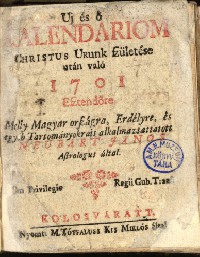 Uj és ó
KALENDARIOM
CHRISTUS Urunk Születése
után való
1701
Esztendőre
Melly Magyar országra, Erdélyre, és
egyéb Tartományokra is alkalmaztattatott
NEUBART JÁNOS
Astrologus által.
Cum Privilegio
Regii Gub. Tran
KOLOSVÁRATT,
Nyomt. M. TÓTFALUSI KIS MIKLÓS által